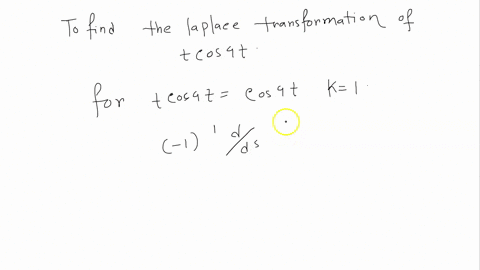 To find the laplace transformation of
t cos 9t.
for t cos 9t = cos 9t K=1.
(-1)^1 d/ds